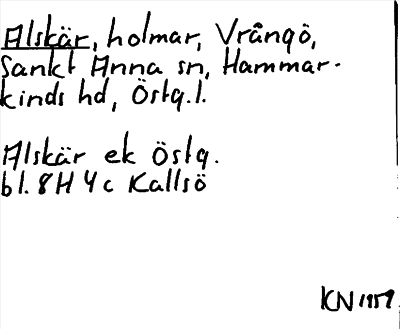 Alskär, holmar, Vrångö,
Sankt Anna sn, Hammar-
kinds hd, Östg.l.
Alskär ek Östg.
bl. 8H 4c Kallsö
KN 1959